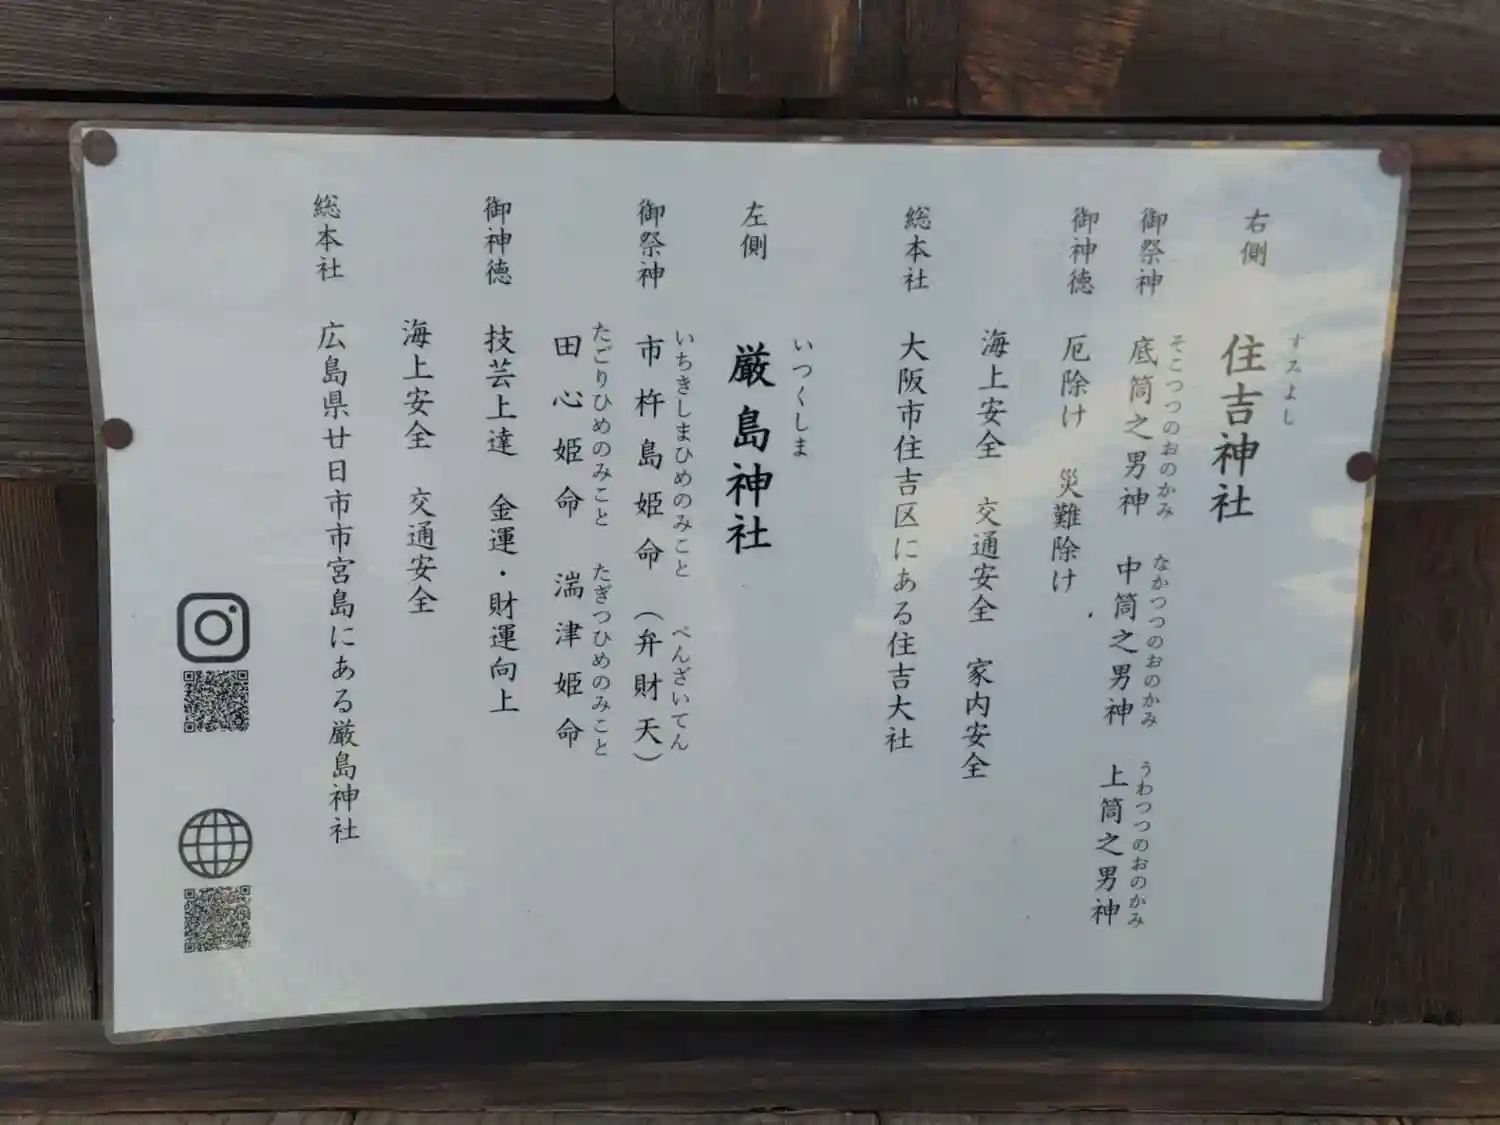 右側　住吉神社
すみよし
御祭神　底筒之男神　中筒之男神　上筒之男神
そこつつのおのかみ　なかつつのおのかみ　うわつつのおのかみ
御神徳　厄除け　災難除け
海上安全　交通安全　家内安全
総本社　大阪市住吉区にある住吉大社
左側　厳島神社
いつくしま
御祭神　市杵島姫命（弁財天）
いちきしまひめのみこと　べんざいてん
田心姫命　湍津姫命
たごりひめのみこと　たぎつひめのみこと
御神徳　技芸上達　金運・財運向上
海上安全　交通安全
総本社　広島県廿日市市宮島にある厳島神社